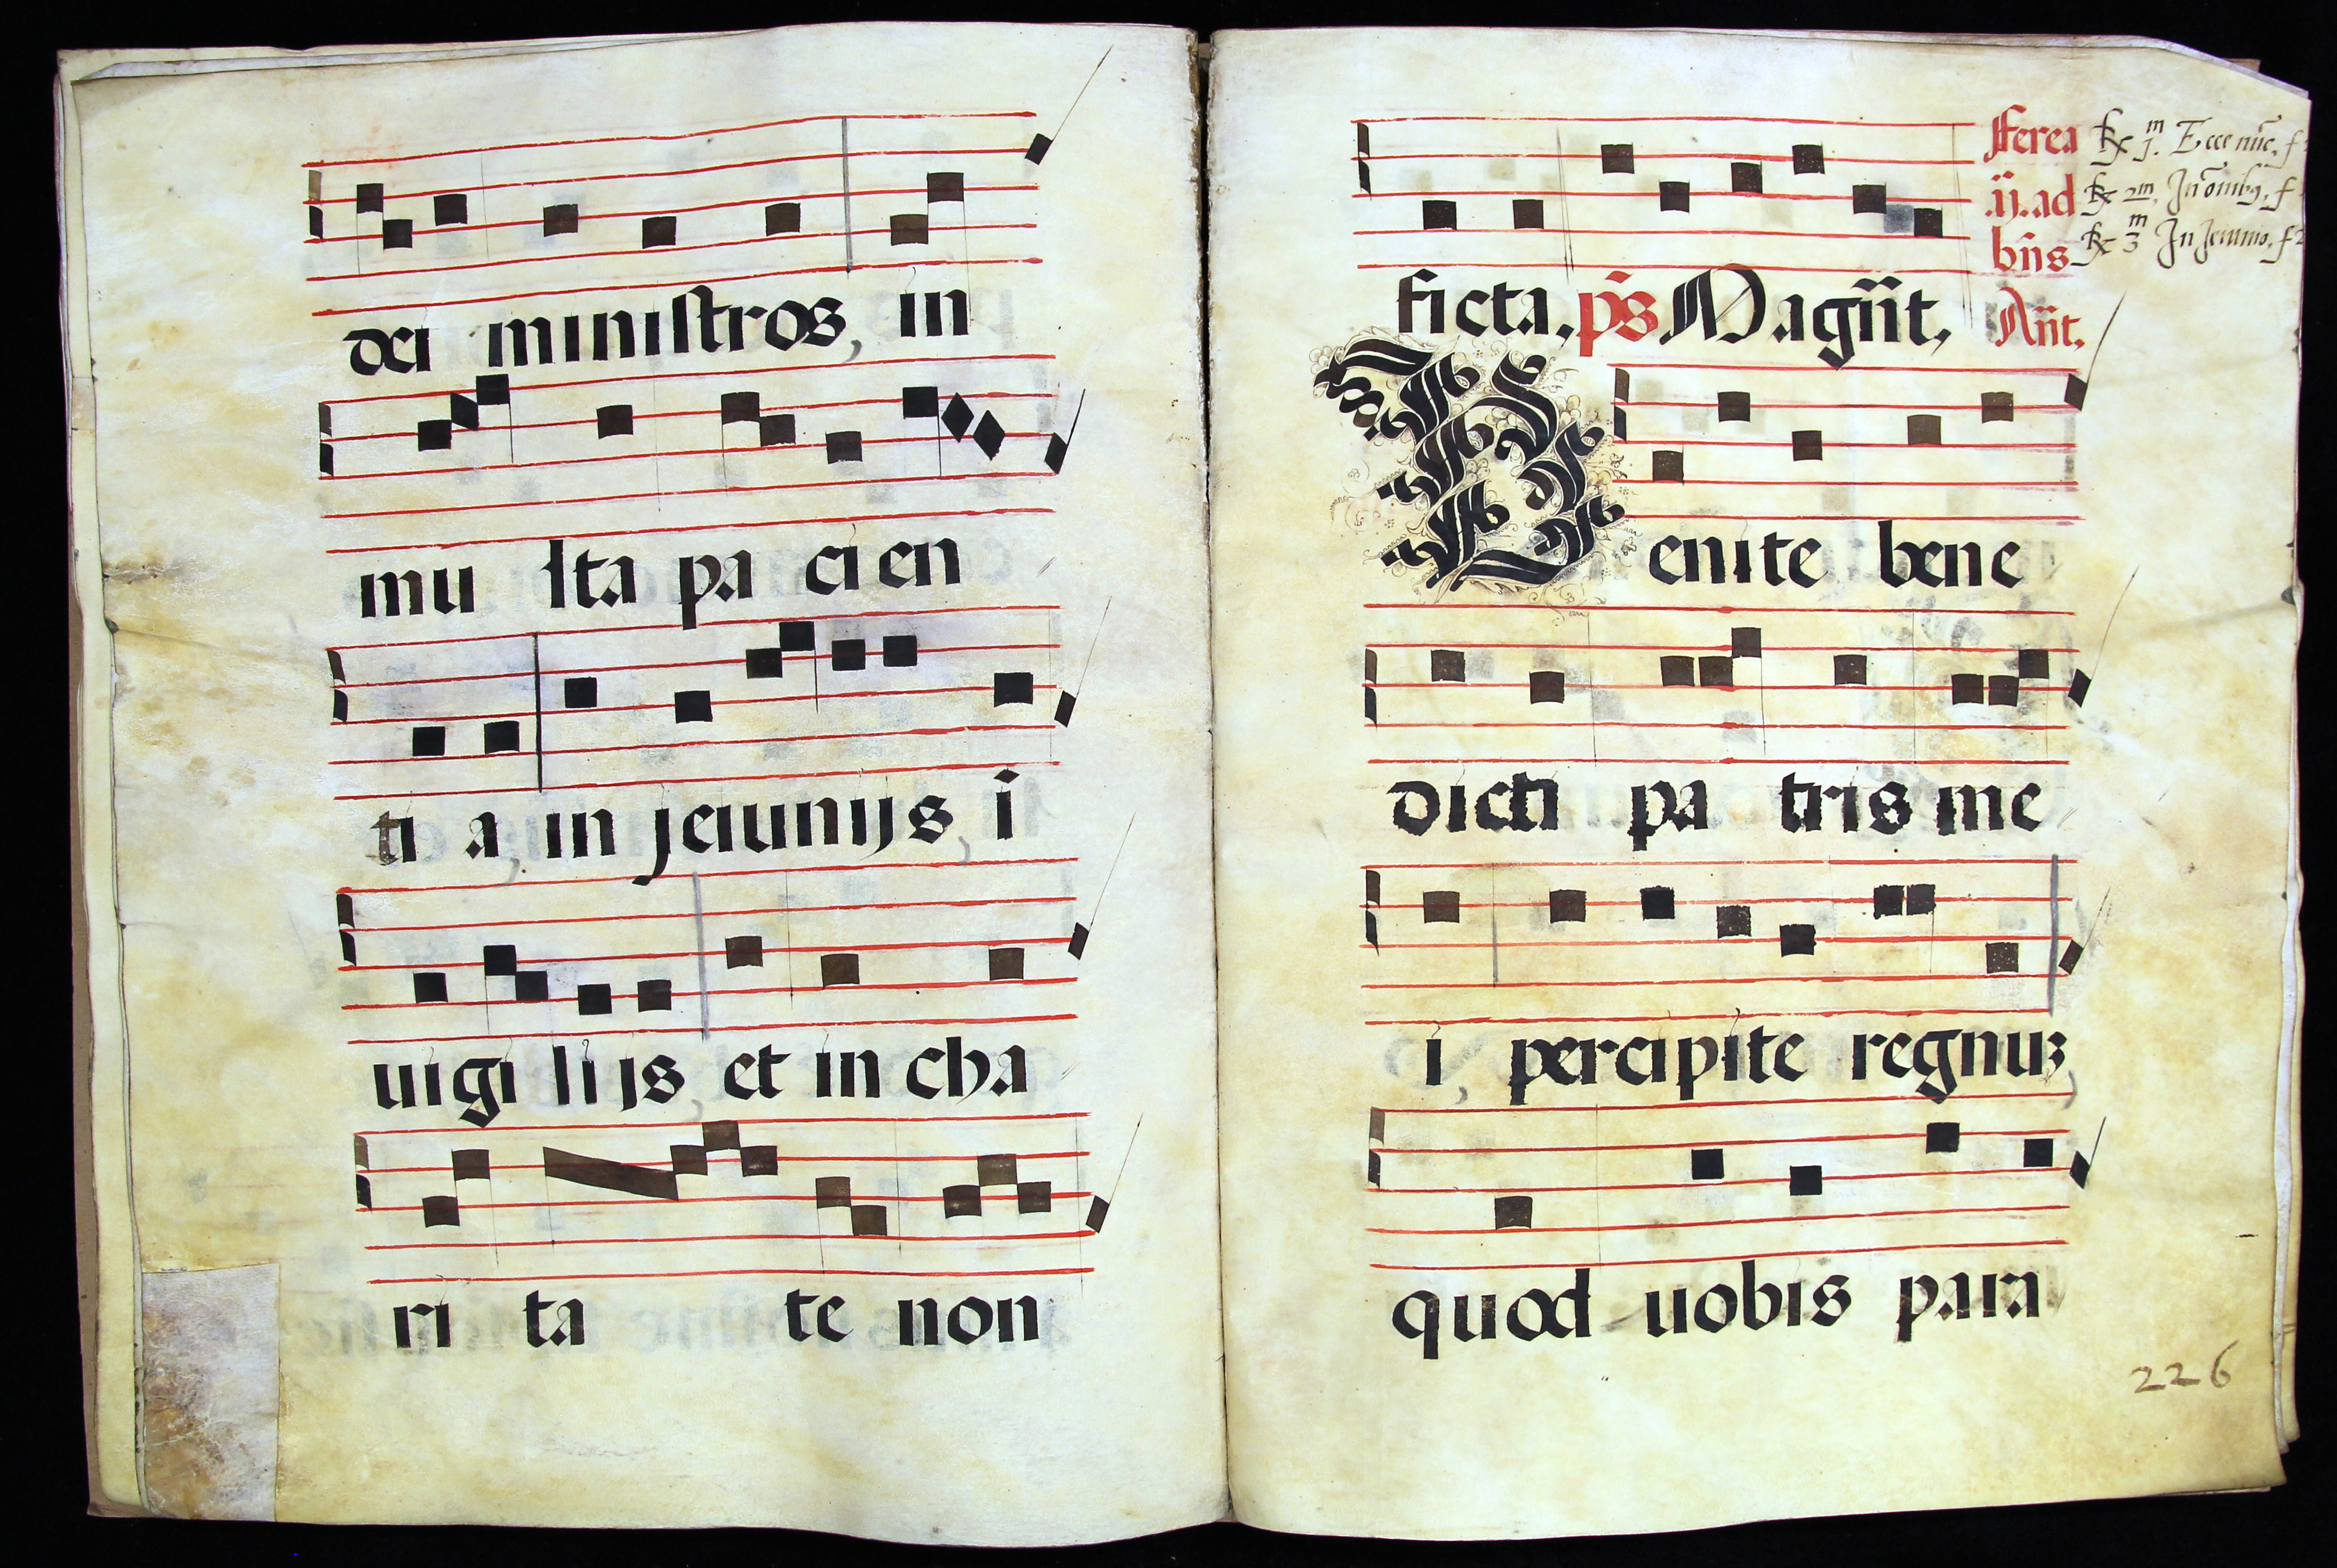 dei ministros, in
mu lta pa ci en
ti a, in jeiunijs, ī
uigi lijs, et in cha
ri ta te non
ficta, p̄s Magn̄t,
fferea
.ij. ad
bn̄s
An̄t.
R̃ j.m Ecce nūc, f
R̃ 2m, In omībꝯ, f
R̃ 3m In Jeiunio, f 2
Venite bene
dicti pa tris me
i, percipite regnuꝫ,
quod uobis para
226